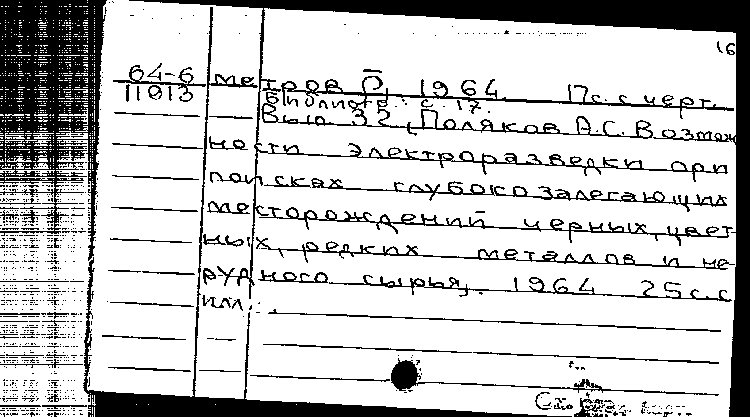 16
64-6
11013
метров О, 1964. 17с. с черт.
Библиогр.: с. 17.
Вып 32, Поляков А.С. Возмож
ности электроразведки при
поисках глубокозалегающих
месторождений черных, цвет
ных, редких металлов и не
рудного сырья,. 1964 25с. с
илл.